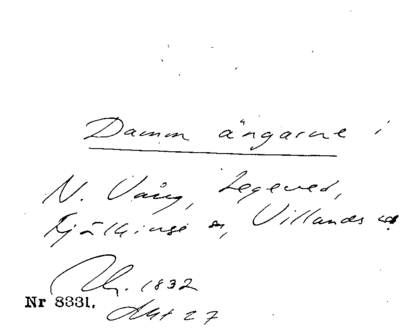 Damm ängarne i
N. Vång, Legeved,
Fjälkinge sn, Villands hd.
1832
Nr 8331.
27